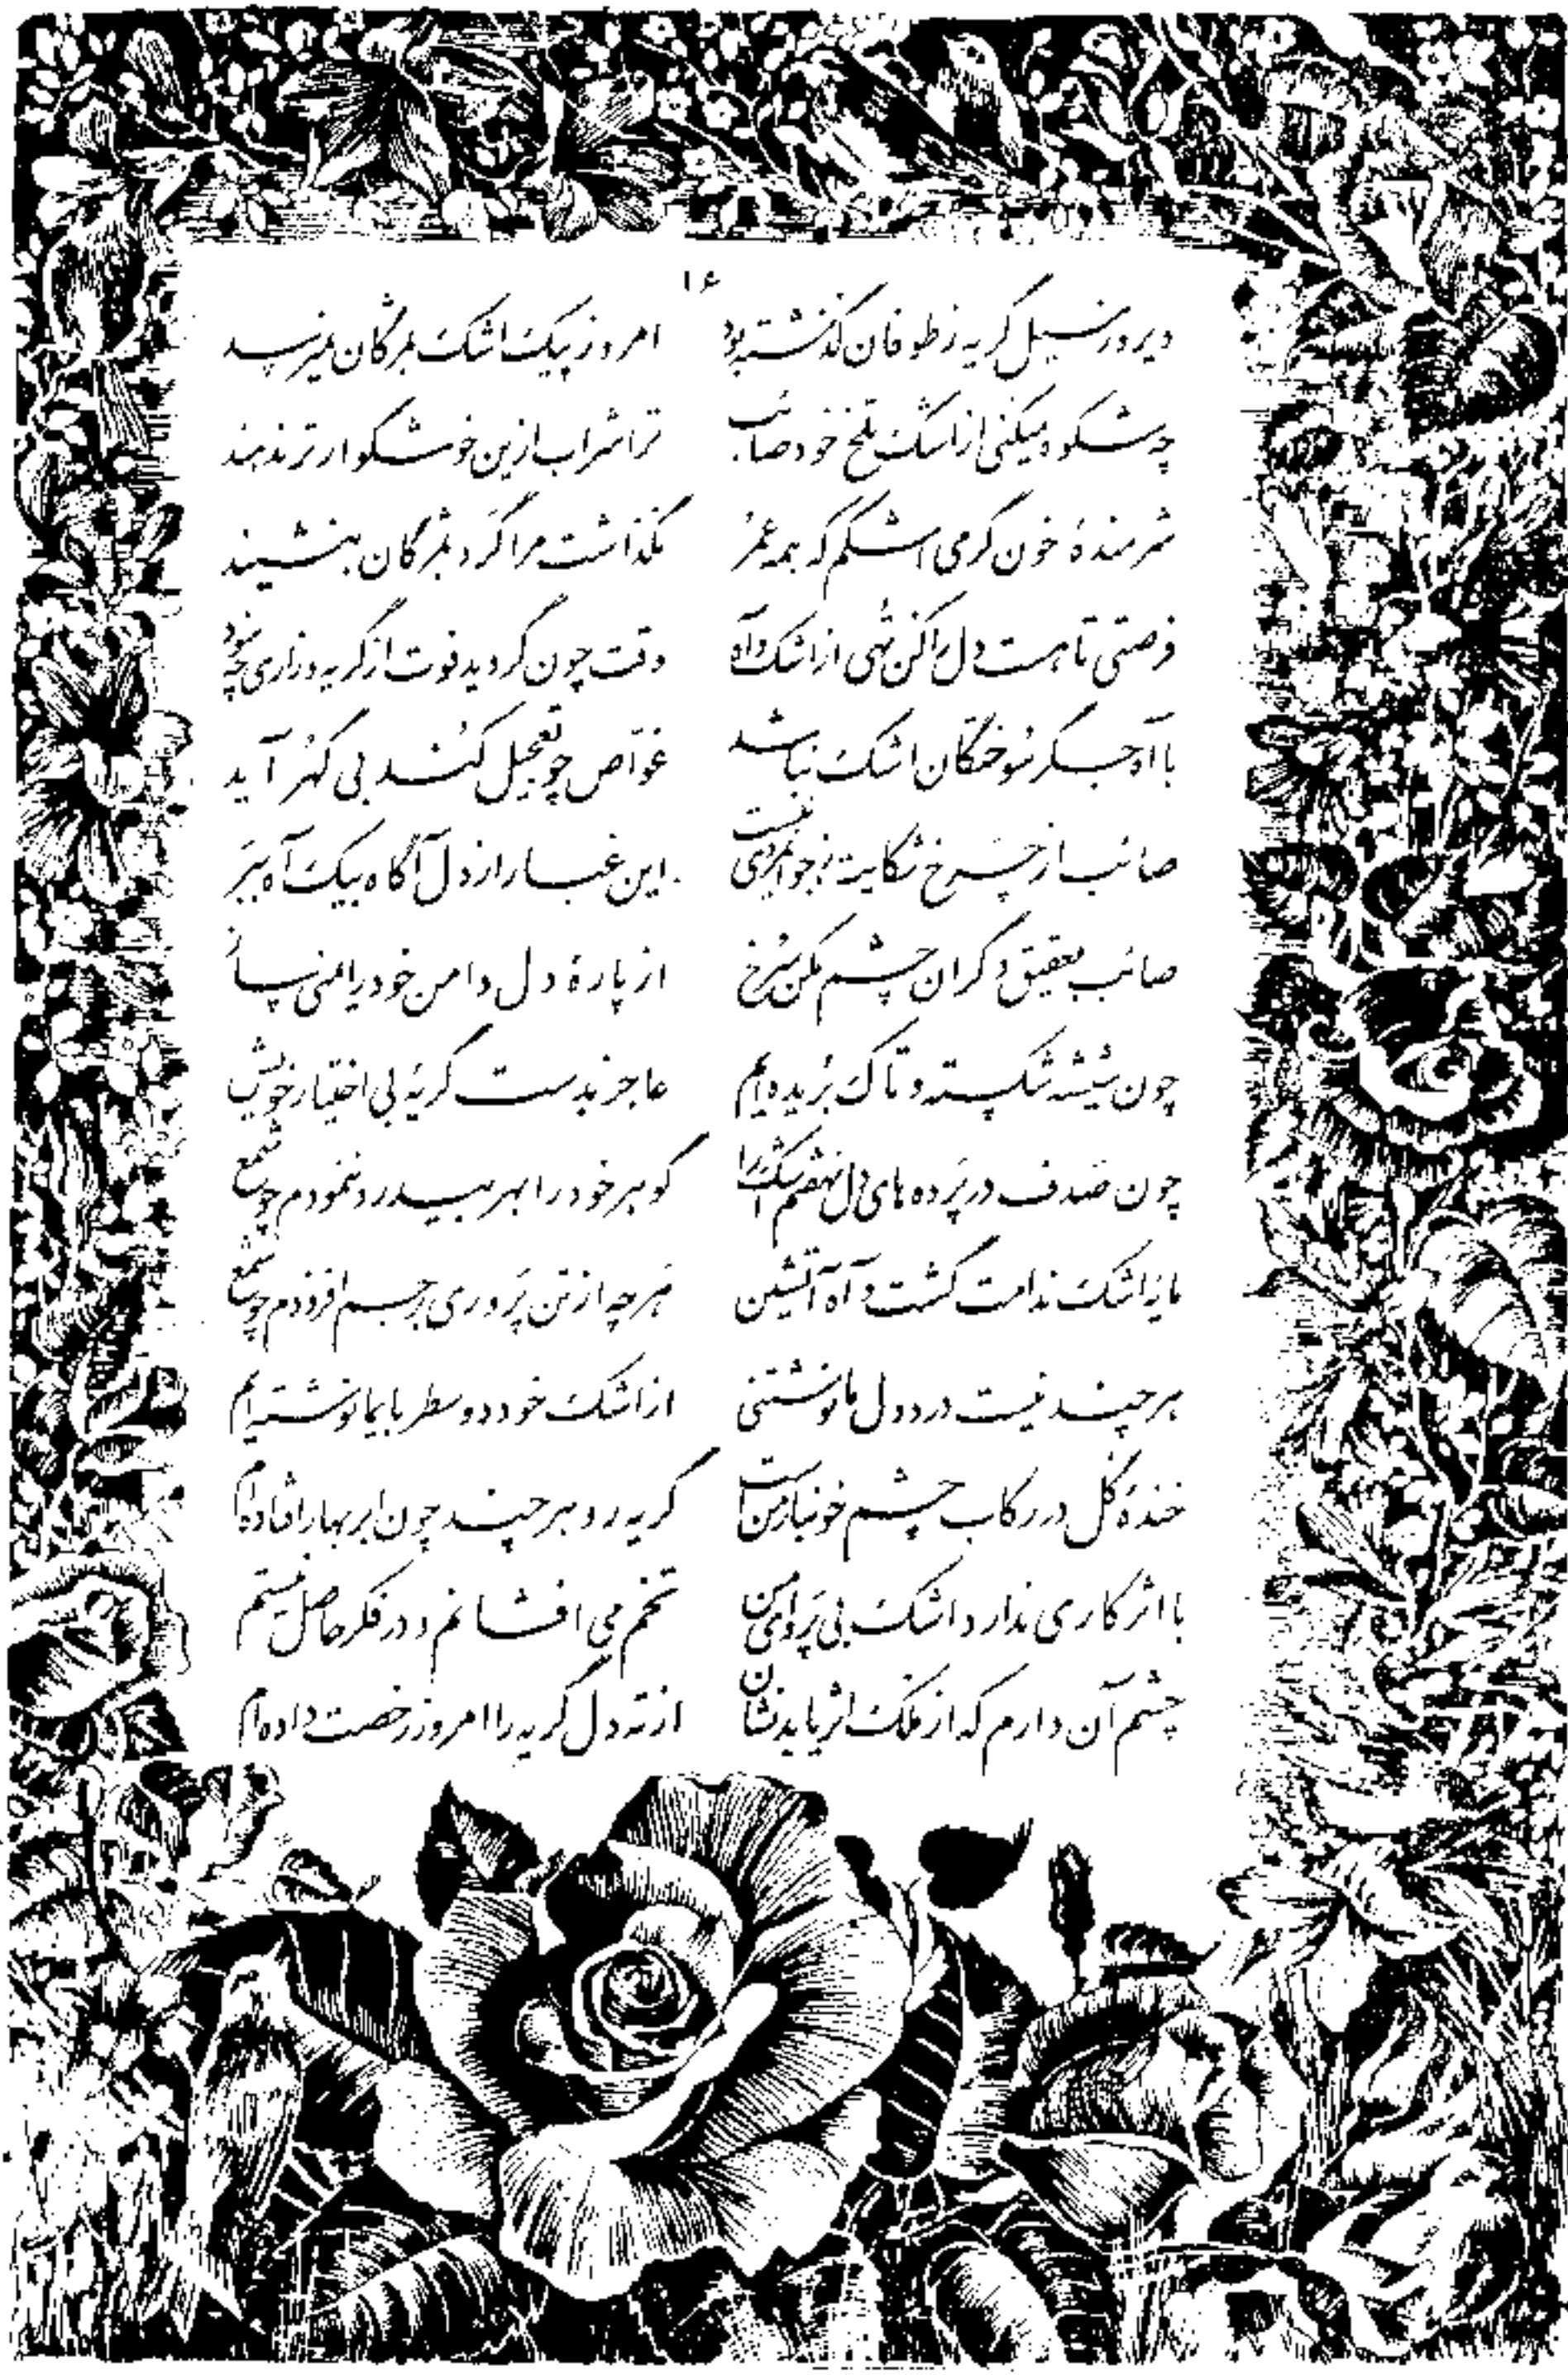 ۱۶
دیروز سیل گریه ز طوفان گذشته بود امروز پیک اشک بمژگان نمیرسد
چه شکوه میکنی از اشک تلخ خود صائب ترا شراب ازین خوشگوارتر ندهند
شرمندهٔ خون گرمی اشکم که همه عمر نگذاشت مرا گرد بمژگان بنشیند
فرصتی تا هست دل را کن تهی از اشک و آه وقت چون گردید فوت از گریه و زاری چه سود
با آه جگر سوختگان اشک نباشد غوّاص چو تعجیل کُند بی گهُر آید
صائب از چرخ شکایت ز جوانمردی نیست این غبار از دل آگاه بیک آه ببَر
صائب بعقیق دگران چشم مکن سُرخ از پارهٔ دل دامن خود را یمنی ساز
چون شیشه شکسته و تاک بُریده ایم عاجز بدست گریهٔ بی اختیار خویش
چون صَدف در پَرده های دل نهفتم اشک را گوهر خود را بهر بیدرد ننمودم چو شمع
مایهٔ اشک ندامت گشت و آه آتشین هَر چه از تن پَروری بر جسم افزودم چو شمع
هر چند نیست درد دل ما نوشتنی از اشک خود دو سطر بایما نوشته ایم
خندهٔ گل در رکاب چشم خونبار من است گریه رو هر چند چون ابر بهار افتاده ام
با اثر کاری ندارد اشک بی پَروای من تخم می افشانم و در فکر حاصل نیستم
چشم آن دارم که از ملک اثر یابد نشان از ته دل گریه را امروز رخصت داده ام